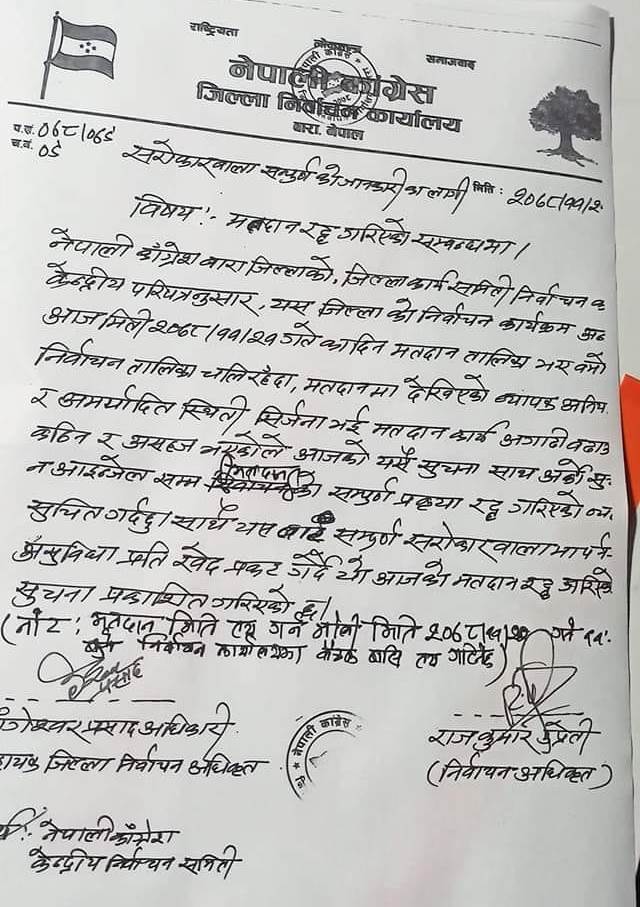 राष्ट्रियता
लोकतन्त्र
समाजवाद
नेपाली काँग्रेस
जिल्ला निर्वाचन कार्यालय
बारा, नेपाल
प.सं. ०७८/०७९
च.नं. ०९
मिति: २०७८/११/२
सरोकारवाला सम्पुर्ण को जानकारी का लागी
विषय :- मतदान रद्द गरिएको सम्बन्धमा।
नेपाली काँग्रेश बारा जिल्लाको, जिल्ला कार्य समिती निर्वाचन क
केन्द्रीय परिपत्रनुसार, यस जिल्ला को निर्वाचन कार्यक्रम
आज मिती २०७८/११/२१ गते का दिन मतदान तालिका भए बमो
निर्वाचन तालिका चलिरहँदा, मतदानमा देखिएको व्यापक अनिय
र अमर्यादित स्थिती सिर्जना भई मतदान कार्य अगाढी बढाउ
कठिन र असहज भएकोले आजको यसै सुचना साथ अर्को सु
न आईन्जेल सम्म मतदान का सम्पुर्ण प्रकृया रद्द गरिएको
सुचित गर्दछु। साथै यस बाट सम्पुर्ण सरोकारवालामा पर्न
असुविधा प्रति खेद प्रकट गर्दै यो आजको मतदान रद्द गरिएको
सुचना प्रकाशित गरिएको छ।
(नोट : मतदान मिति तय गर्न भोली मिति २०७८/११/२२ गते ११
बजे निर्वाचन कार्यालयका बैठक बसि तय गरिनेछ)
प्रसाद अधिकारी
जिल्ला निर्वाचन अधिकृत
नेपाली काँग्रेस
राजकुमार उप्रेती
(निर्वाचन अधिकृत)
नेपाली काँग्रेस
केन्द्रीय निर्वाचन समिती